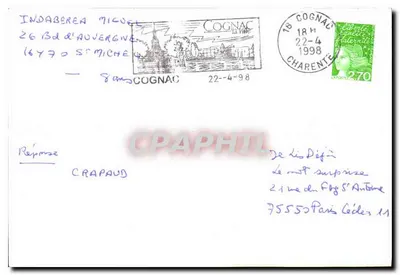 INDABEREA MIGUEL
26 Bd d'AUVERGNE
16470 St MICHEL
8 ans
COGNAC
COGNAC
22--4-98
18 COGNAC
18 H
22-4
1998
CHARENTE
2,70
Réponse
CRAPAUD
Je Lis Déjà
Le mot surprise
21 rue du Fbg St Antoine
75550 Paris Cédex 11
CPARAMA.COM